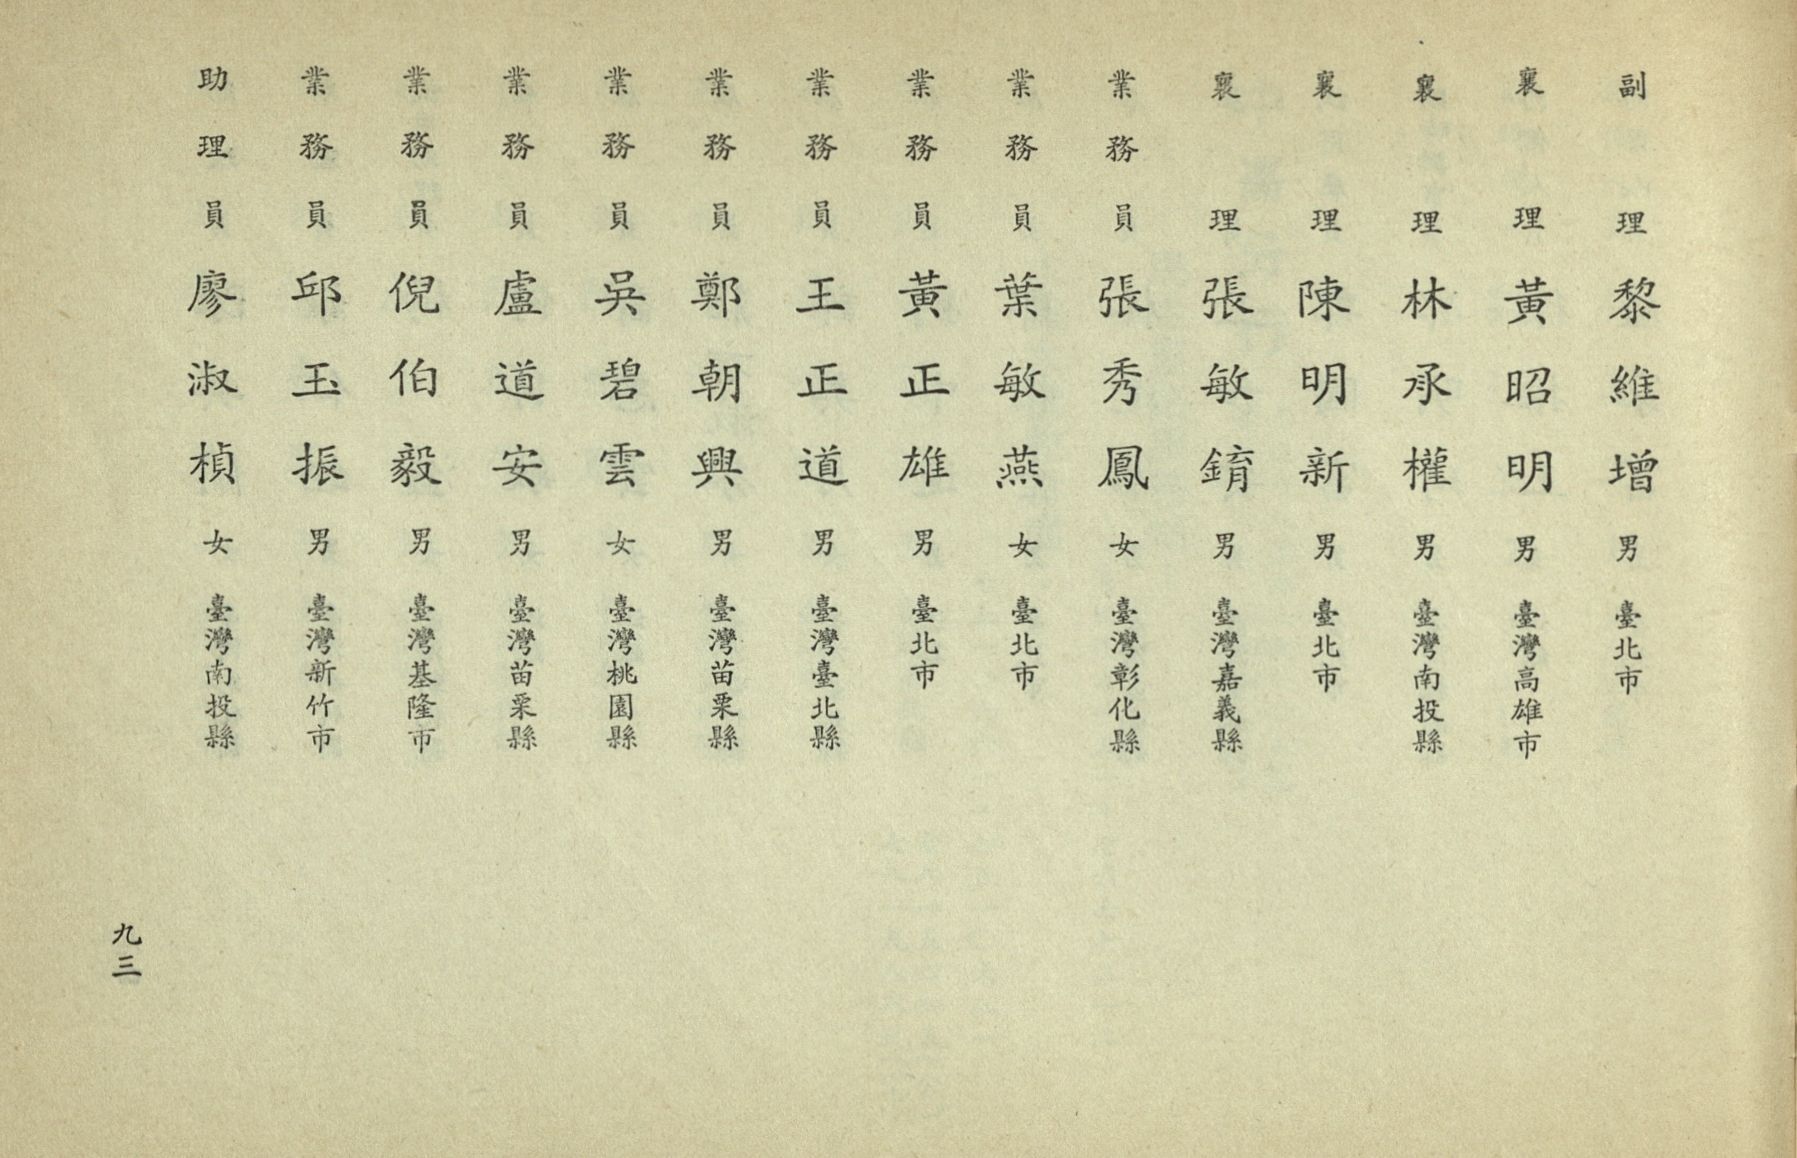 副理黎維增男臺北市
襄理黃昭明男臺灣高雄市
襄理林承權男臺灣南投縣
襄理陳明新男臺北市
襄理張敏錥男臺灣嘉義縣
業務員張秀鳳女臺灣彰化縣
業務員葉敏燕女臺北市
業務員黃正雄男臺北市
業務員王正道男臺灣臺北縣
業務員鄭朝興男臺灣苗栗縣
業務員吳碧雲女臺灣桃園縣
業務員盧道安男臺灣苗栗縣
業務員倪伯毅男臺灣基隆市
業務員邱玉振男臺灣新竹市
助理員廖淑楨女臺灣南投縣
九三